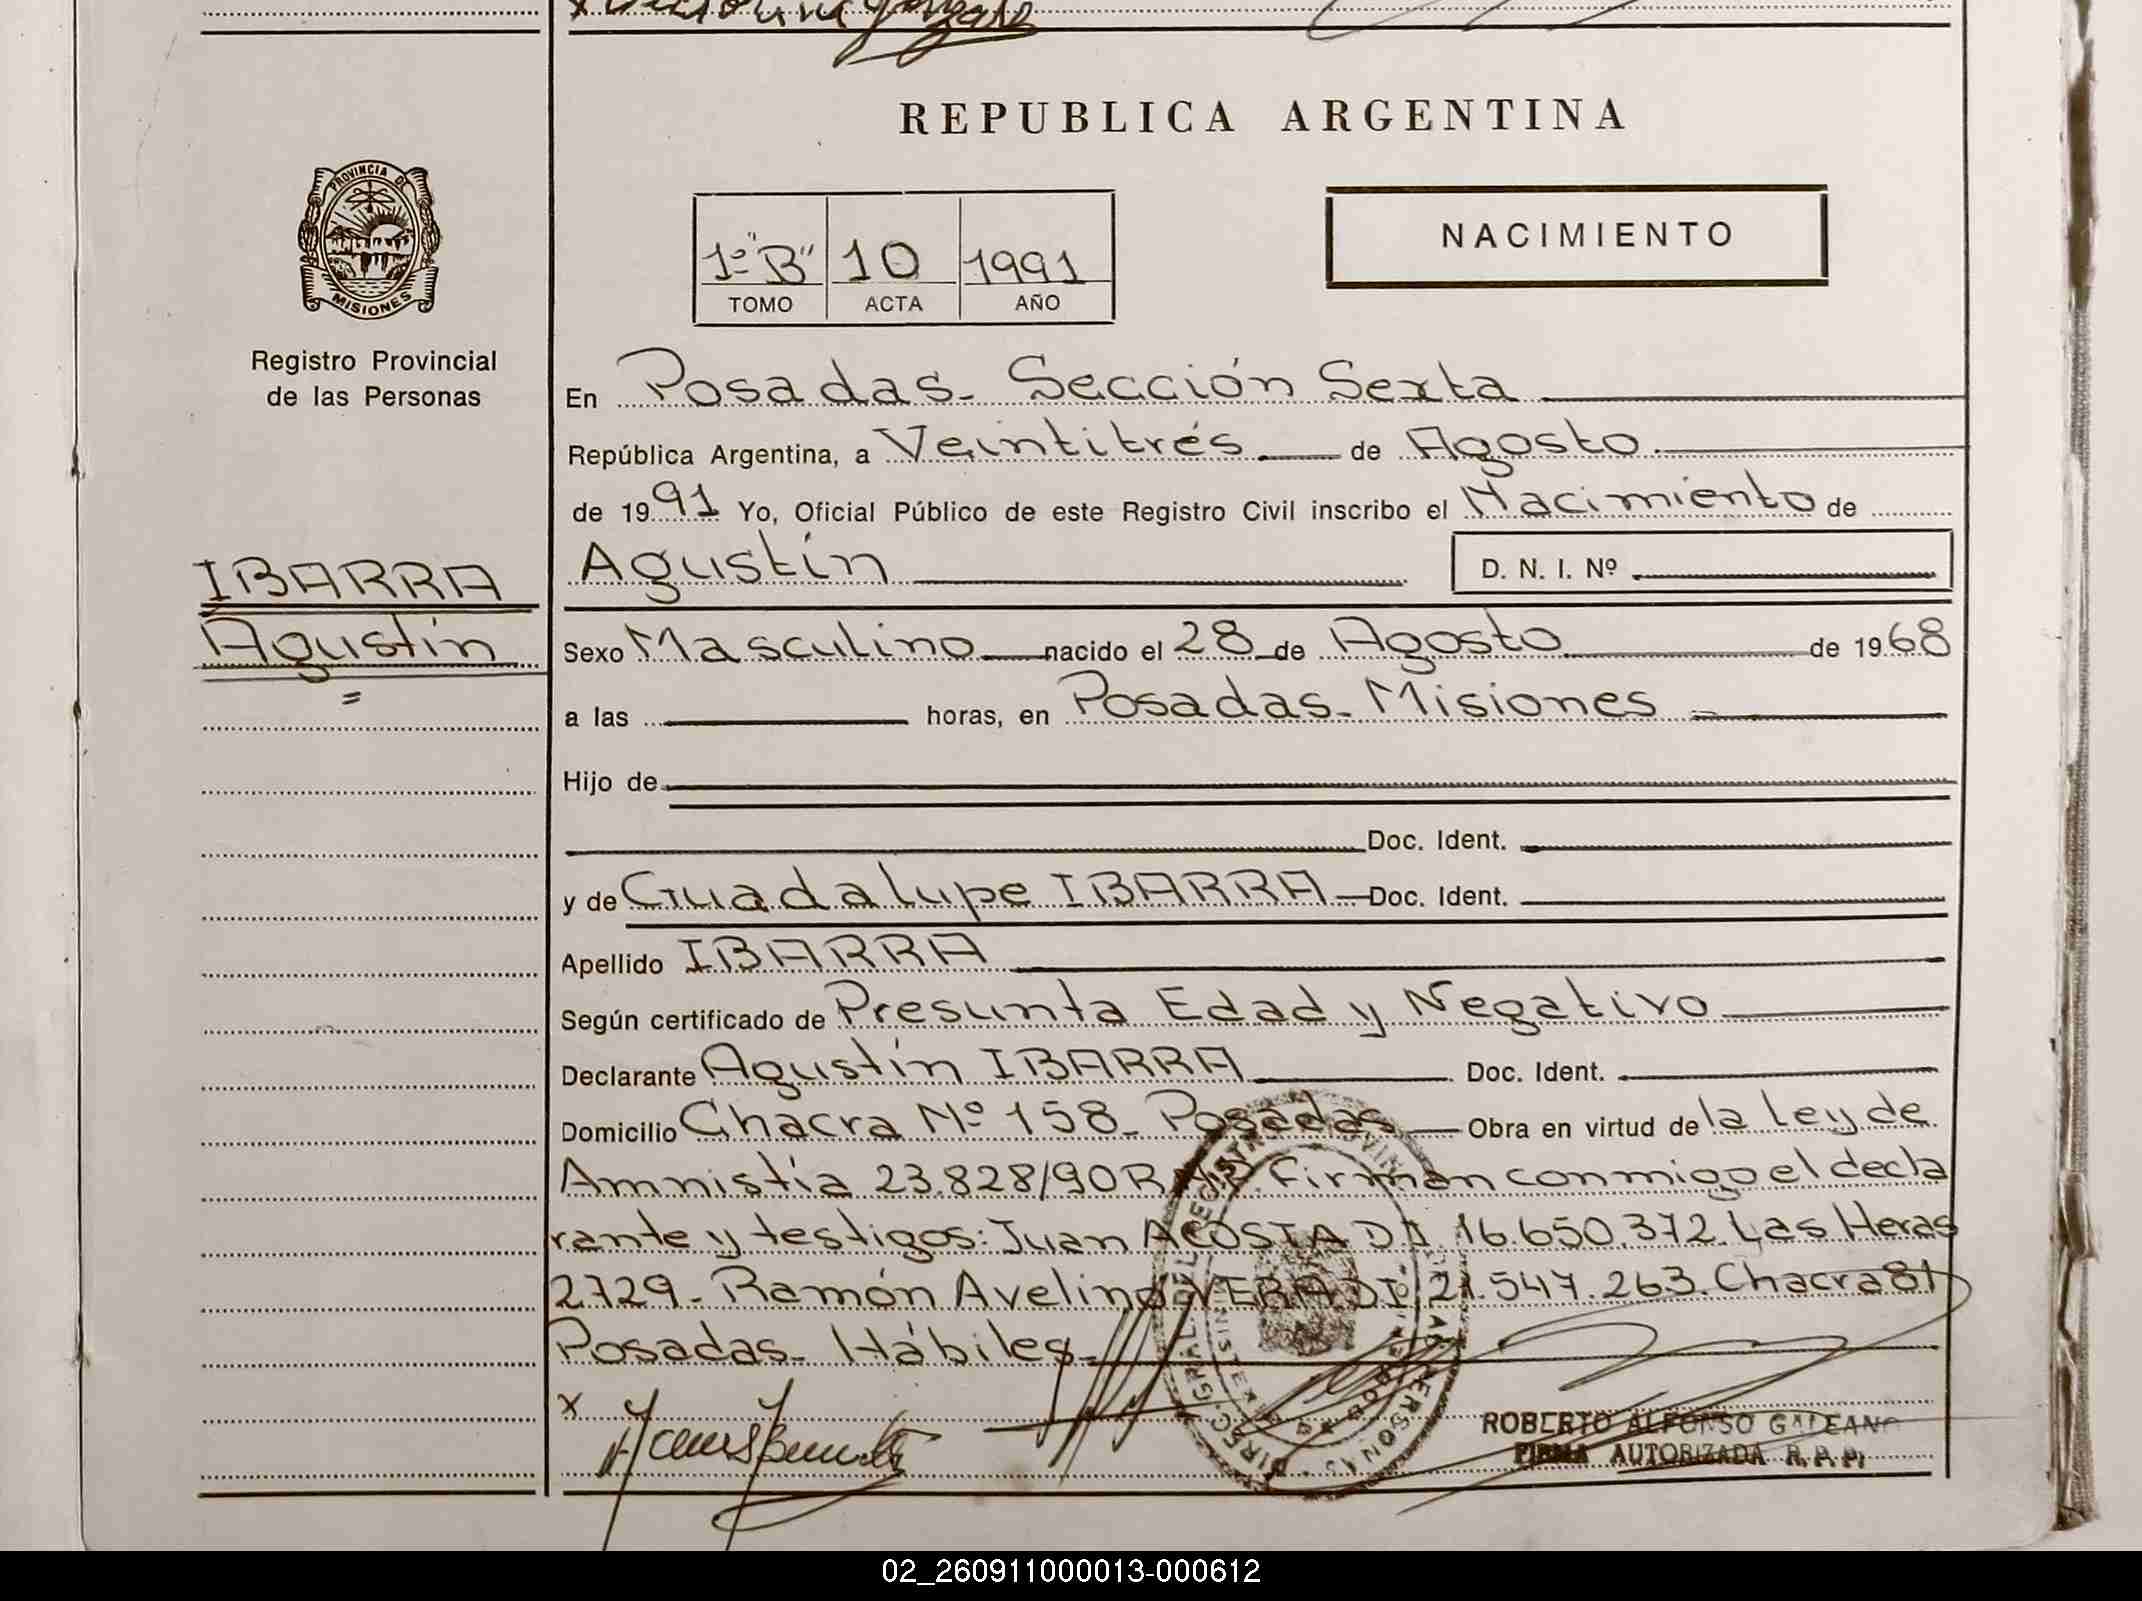 REPUBLICA ARGENTINA
PROVINCIA DE
MISIONES
Registro Provincial
de las Personas
1º "B" 10 1991
TOMO ACTA AÑO
NACIMIENTO
En Posadas - Sección Sexta
República Argentina, a Veintitrés de Agosto
de 1991 Yo, Oficial Público de este Registro Civil inscribo el Nacimiento de
Agustín
D. N. I. Nº
IBARRA
Agustín
Sexo Masculino nacido el 28 de Agosto de 1968
a las horas, en Posadas - Misiones
Hijo de
Doc. Ident.
y de Guadalupe IBARRA - Doc. Ident.
Apellido IBARRA
Según certificado de Presunta Edad y Negativo
Declarante Agustín IBARRA Doc. Ident.
Domicilio Chacra Nº 158 - Posadas Obra en virtud de la Ley de
Amnistía 23.828/90 Firman conmigo el decla
rante y testigos: Juan ACOSTA DI 16.650.372. Las Heras
2729 - Ramón Avelino VERA DI 21.547.263. Chacra 81
Posadas - Hábiles -
x
ROBERTO ALFONSO GALEANO
FIRMA AUTORIZADA R. P. P.
02_260911000013-000612